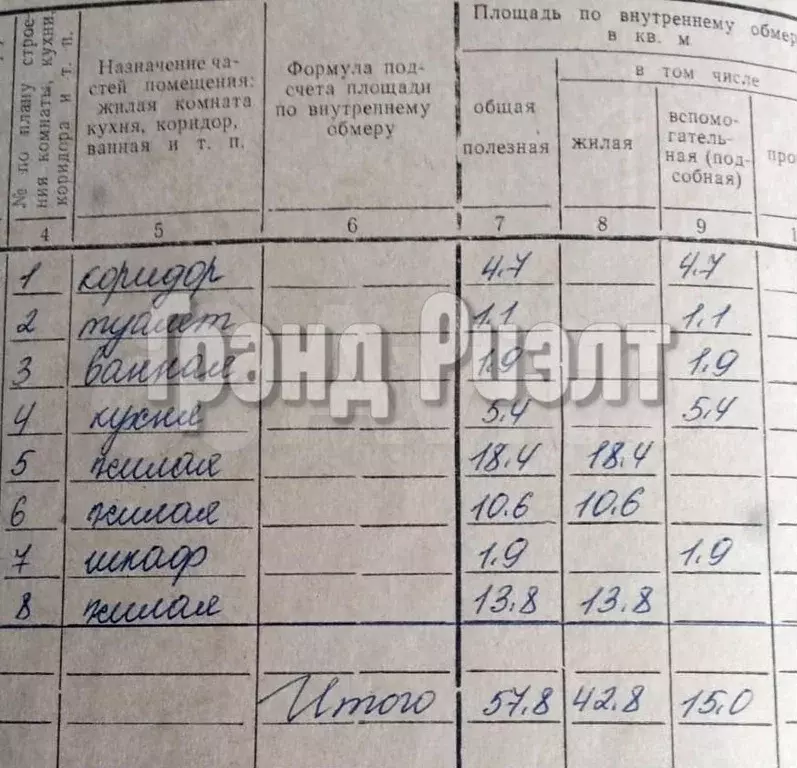 Площадь по внутреннему обмер
в кв. м
№ по плану строе-
ния комнаты, кухни,
коридора и т. п.
Назначение ча-
стей помещения:
жилая комната
кухня, коридор,
ванная и т. п.
Формула под-
счета площади
по внутреннему
обмеру
общая
полезная
в том числе
жилая
вспомо-
гатель-
ная (под-
собная)
про
4 5 6 7 8 9 1
1 коридор 4.7 4.7
2 туалет 1.1 1.1
3 ванная 1.9 1.9
4 кухня 5.4 5.4
5 жилая 18.4 18.4
6 жилая 10.6 10.6
7 шкаф 1.9 1.9
8 жилая 13.8 13.8
Итого 57.8 42.8 15.0
Гранд Риэлт